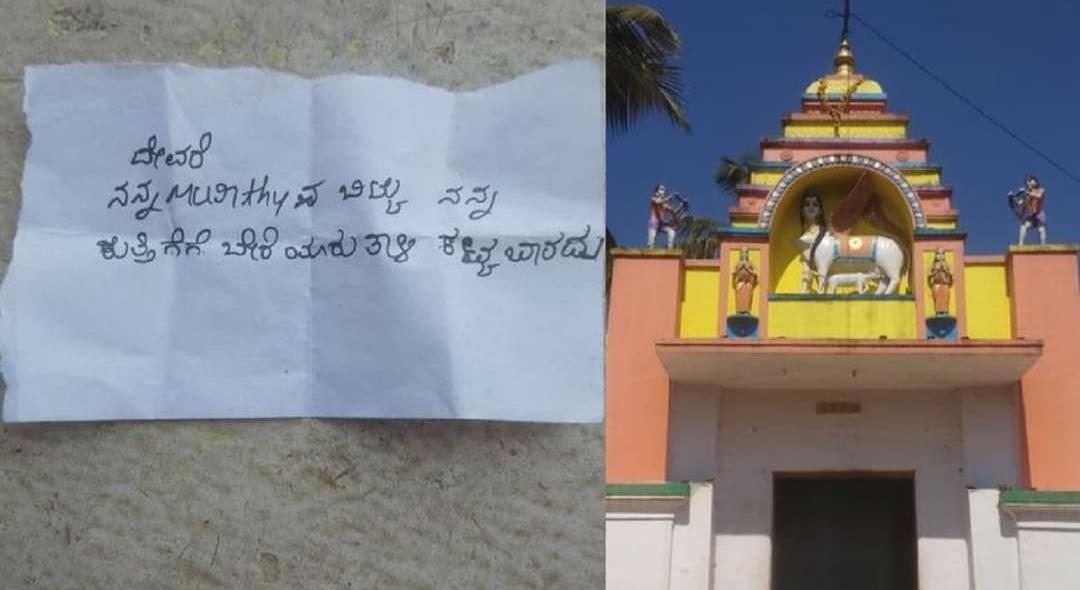 ದೇವರೆ
ನನ್ನ Muನಿthyನ ಬಿಟ್ಟು ನನ್ನ
ಕುತ್ತಿಗೆಗೆ ಬೇರೆ ಯಾರು ತಾಳಿ ಕಟ್ಟಬಾರದು